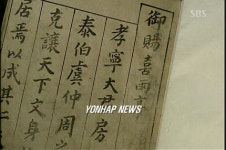 SBS
御賜喜雨
孝寧大君房
泰伯虞仲周
克讓天下文身
居焉以成其二
YONHAP NEWS